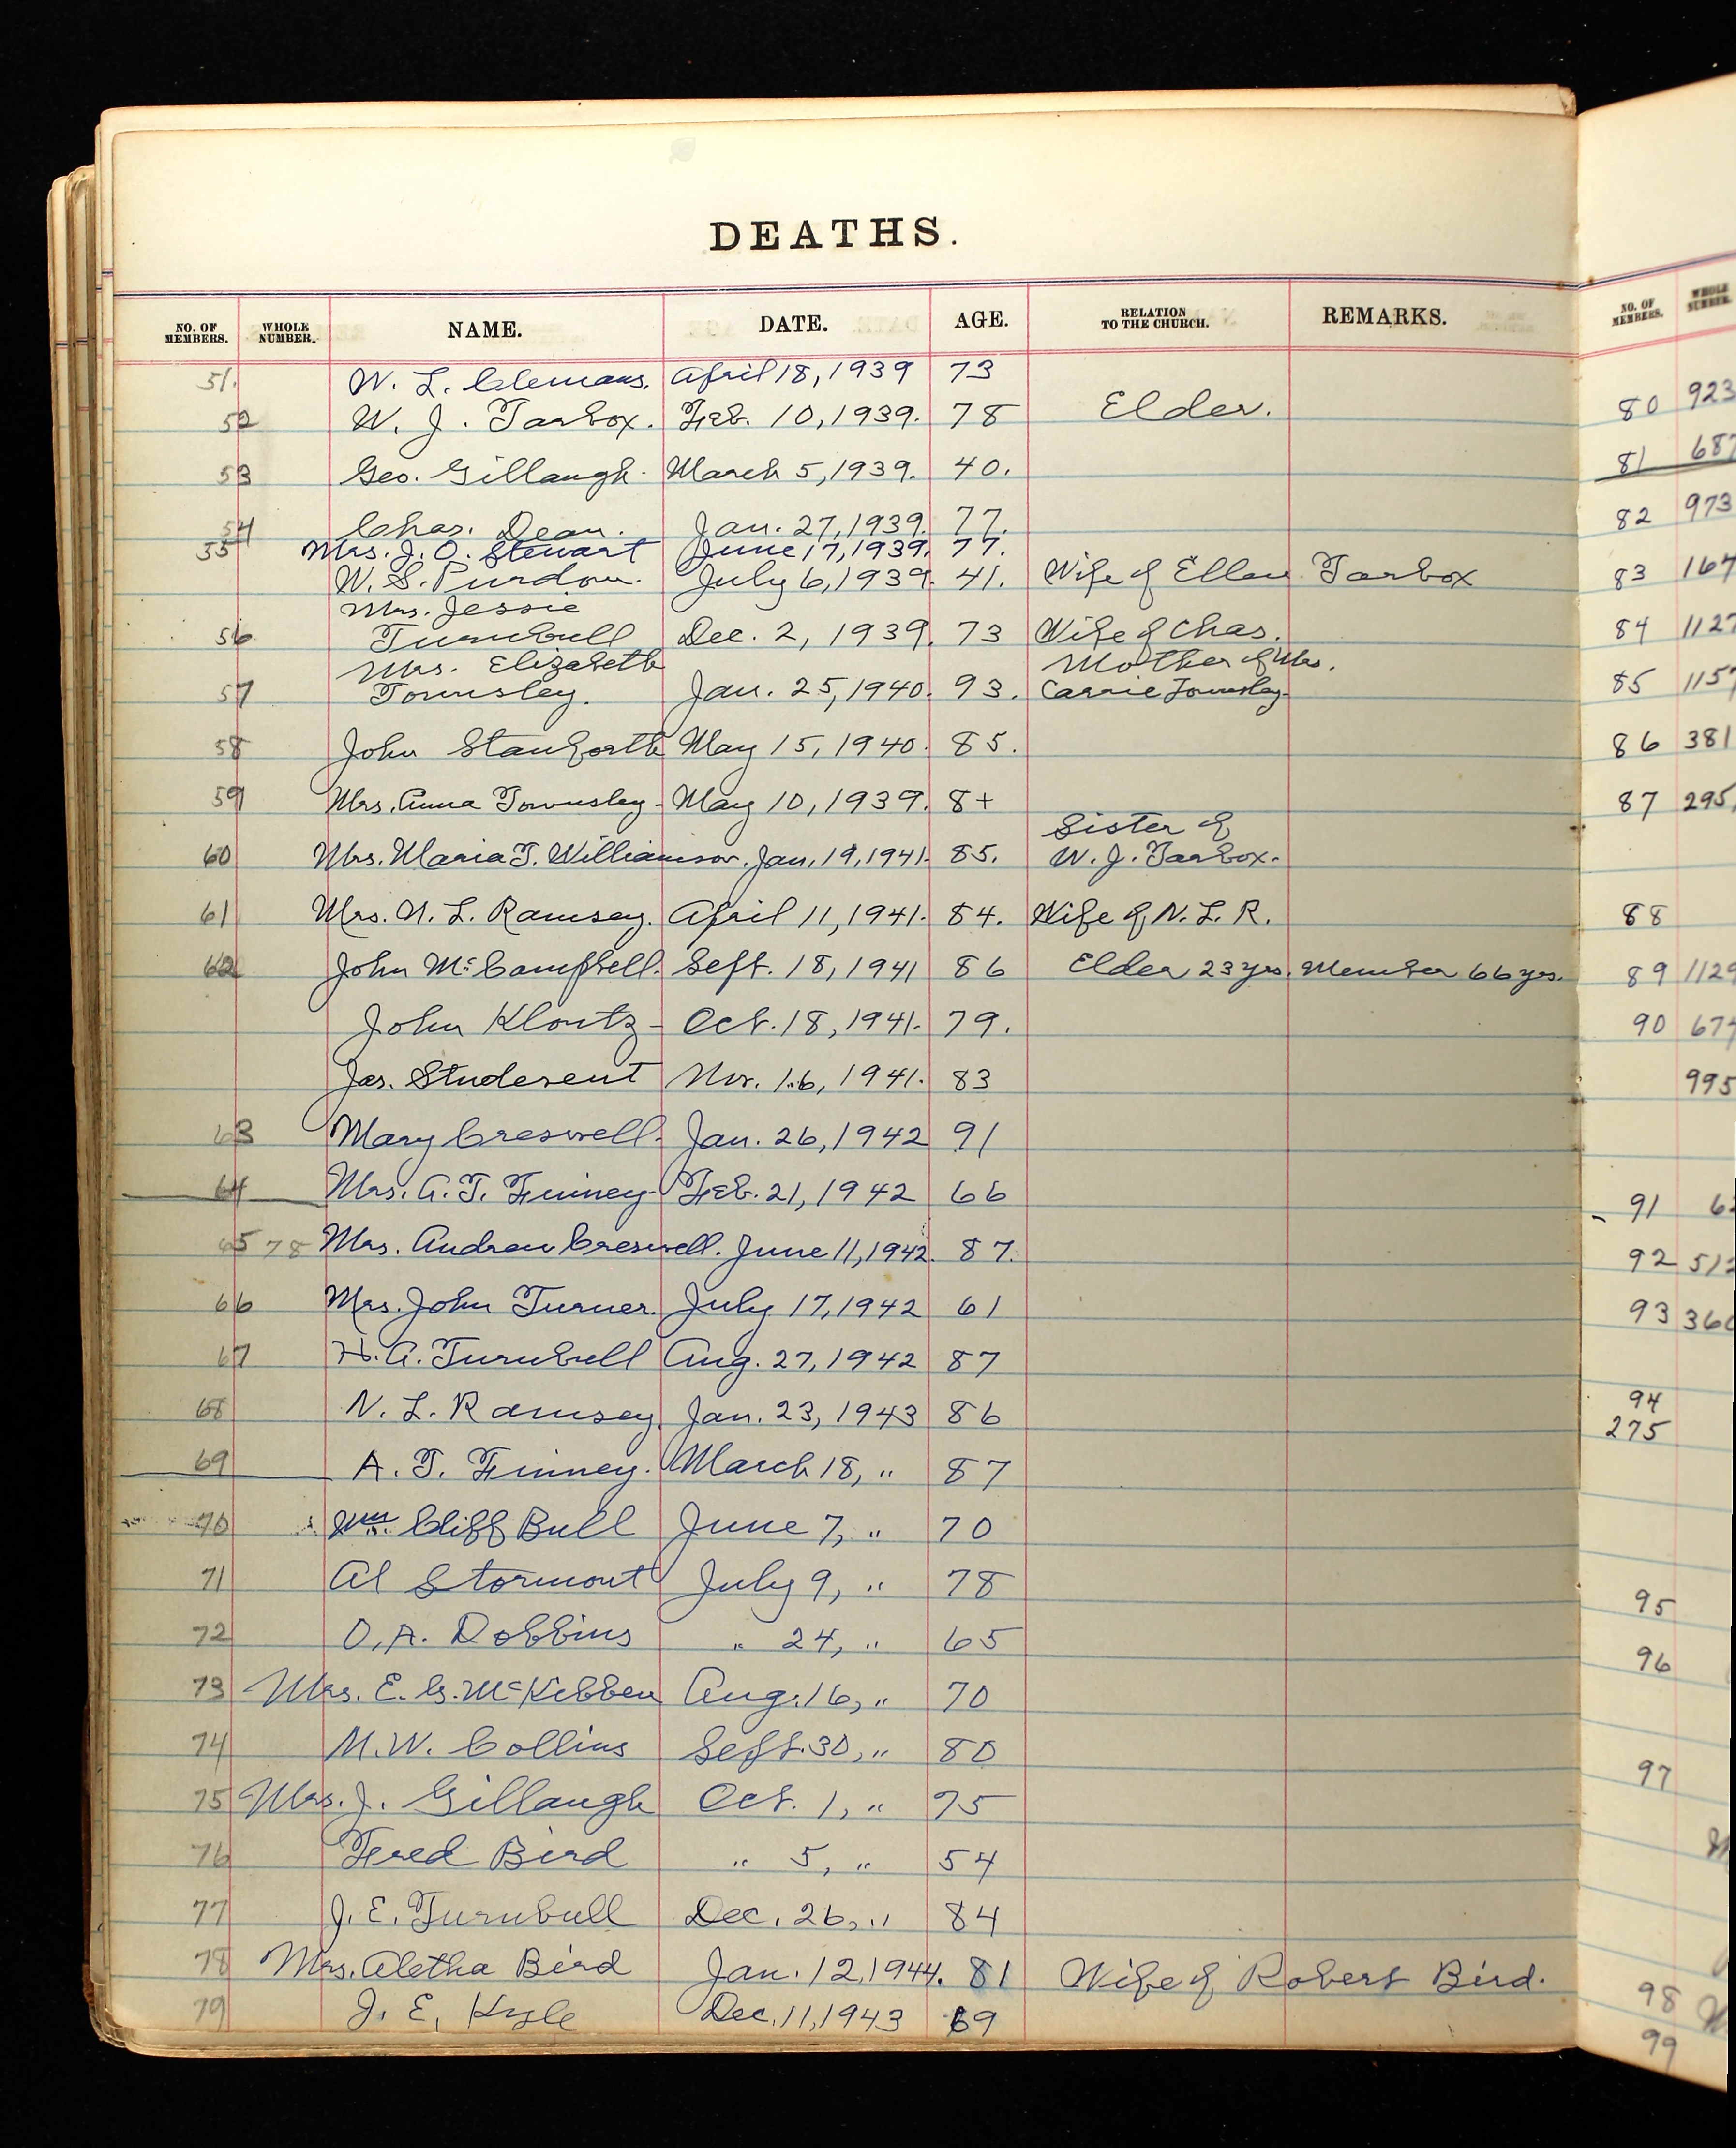 DEATHS.
NO. OF MEMBERS. WHOLE NUMBER. NAME. DATE. AGE. RELATION TO THE CHURCH. REMARKS.
51. W. L. Clemans. April 18, 1939 73
52 W. J. Tarbox. Feb. 10, 1939. 78 Elder.
53 Geo. Gillaugh. March 5, 1939. 40.
54 Chas. Dean. Jan. 27, 1939. 77.
55 Mrs. J. O. Stewart June 17, 1939. 77.
W. S. Purdom. July 6, 1939. 41. Wife of Ellen Tarbox
Mrs. Jessie
56 Turnbull Dec. 2, 1939. 73 Wife of Chas.
Mrs. Elizabeth Mother of Mrs.
57 Townsley. Jan. 25, 1940. 93. Carrie Townsley
58 John Stanforth May 15, 1940. 85.
59 Mrs. Anna Townsley - May 10, 1939. 8+
Sister of
60 Mrs. Maria T. Williamson. Jan. 19, 1941. 85. W. J. Tarbox.
61 Mrs. N. L. Ramsey. April 11, 1941. 84. Wife of N. L. R.
62 John McCampbell. Sept. 18, 1941 86 Elder 23 yrs. Member 66 yrs.
John Klontz - Oct. 18, 1941. 79.
Jas. Studevent Nov. 16, 1941. 83
63 Mary Creswell. Jan. 26, 1942 91
64 Mrs. A. T. Finney - Feb. 21, 1942 66
65 78 Mrs. Andrew Creswell. June 11, 1942. 87.
66 Mrs. John Turner. July 17, 1942 61
67 H. A. Turnbull Aug. 27, 1942 87
68 N. L. Ramsey Jan. 23, 1943 86
69 A. T. Finney. March 18, " 87
70 Wm. Cliff Bull June 7, " 70
71 Al Stormont July 9, " 78
72 O. A. Dobbins " 24, " 65
73 Mrs. E. G. McKibben Aug. 16, " 70
74 M. W. Collins Sept. 30, " 80
75 Mrs. J. Gillaugh Oct. 1, " 75
76 Fred Bird " 5, " 54
77 J. E. Turnbull Dec. 26, " 84
78 Mrs. Aletha Bird Jan. 12, 1944. 81 Wife of Robert Bird.
79 J. E. Kyle Dec. 11, 1943 69
NO. OF MEMBERS. WHOLE NUMBER.
80 923
81 687
82 973
83 167
84 1127
85 1157
86 381
87 295
88
89 1129
90 677
995
91 6
92 512
93 360
94
275
95
96
97
98
99